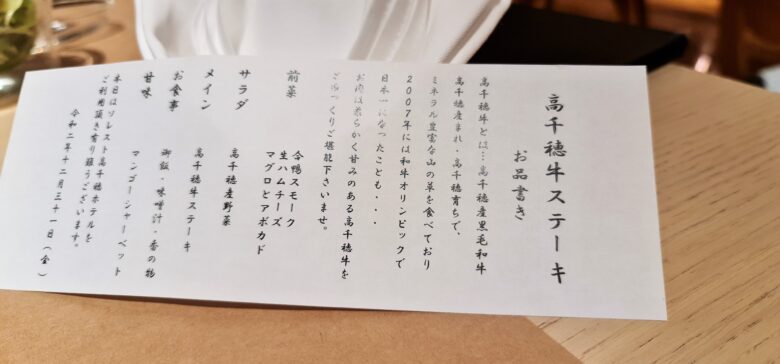 高千穂牛ステーキ
お品書き
高千穂牛とは…高千穂産黒毛和牛
高千穂産まれ・高千穂育ちで、
ミネラル豊富な山の草を食べており
2007年には和牛オリンピックで
日本一になったことも・・・
お肉は柔らかく甘みのある高千穂牛を
ごゆっくりご堪能下さいませ。
前菜 合鴨スモーク
生ハムチーズ
マグロとアボカド
サラダ 高千穂産野菜
メイン 高千穂牛ステーキ
お食事 御飯・味噌汁・香の物
甘味 マンゴーシャーベット
本日はソレスト高千穂ホテルを
ご利用頂き有り難うございます。
令和二年十二月三十一日(金)